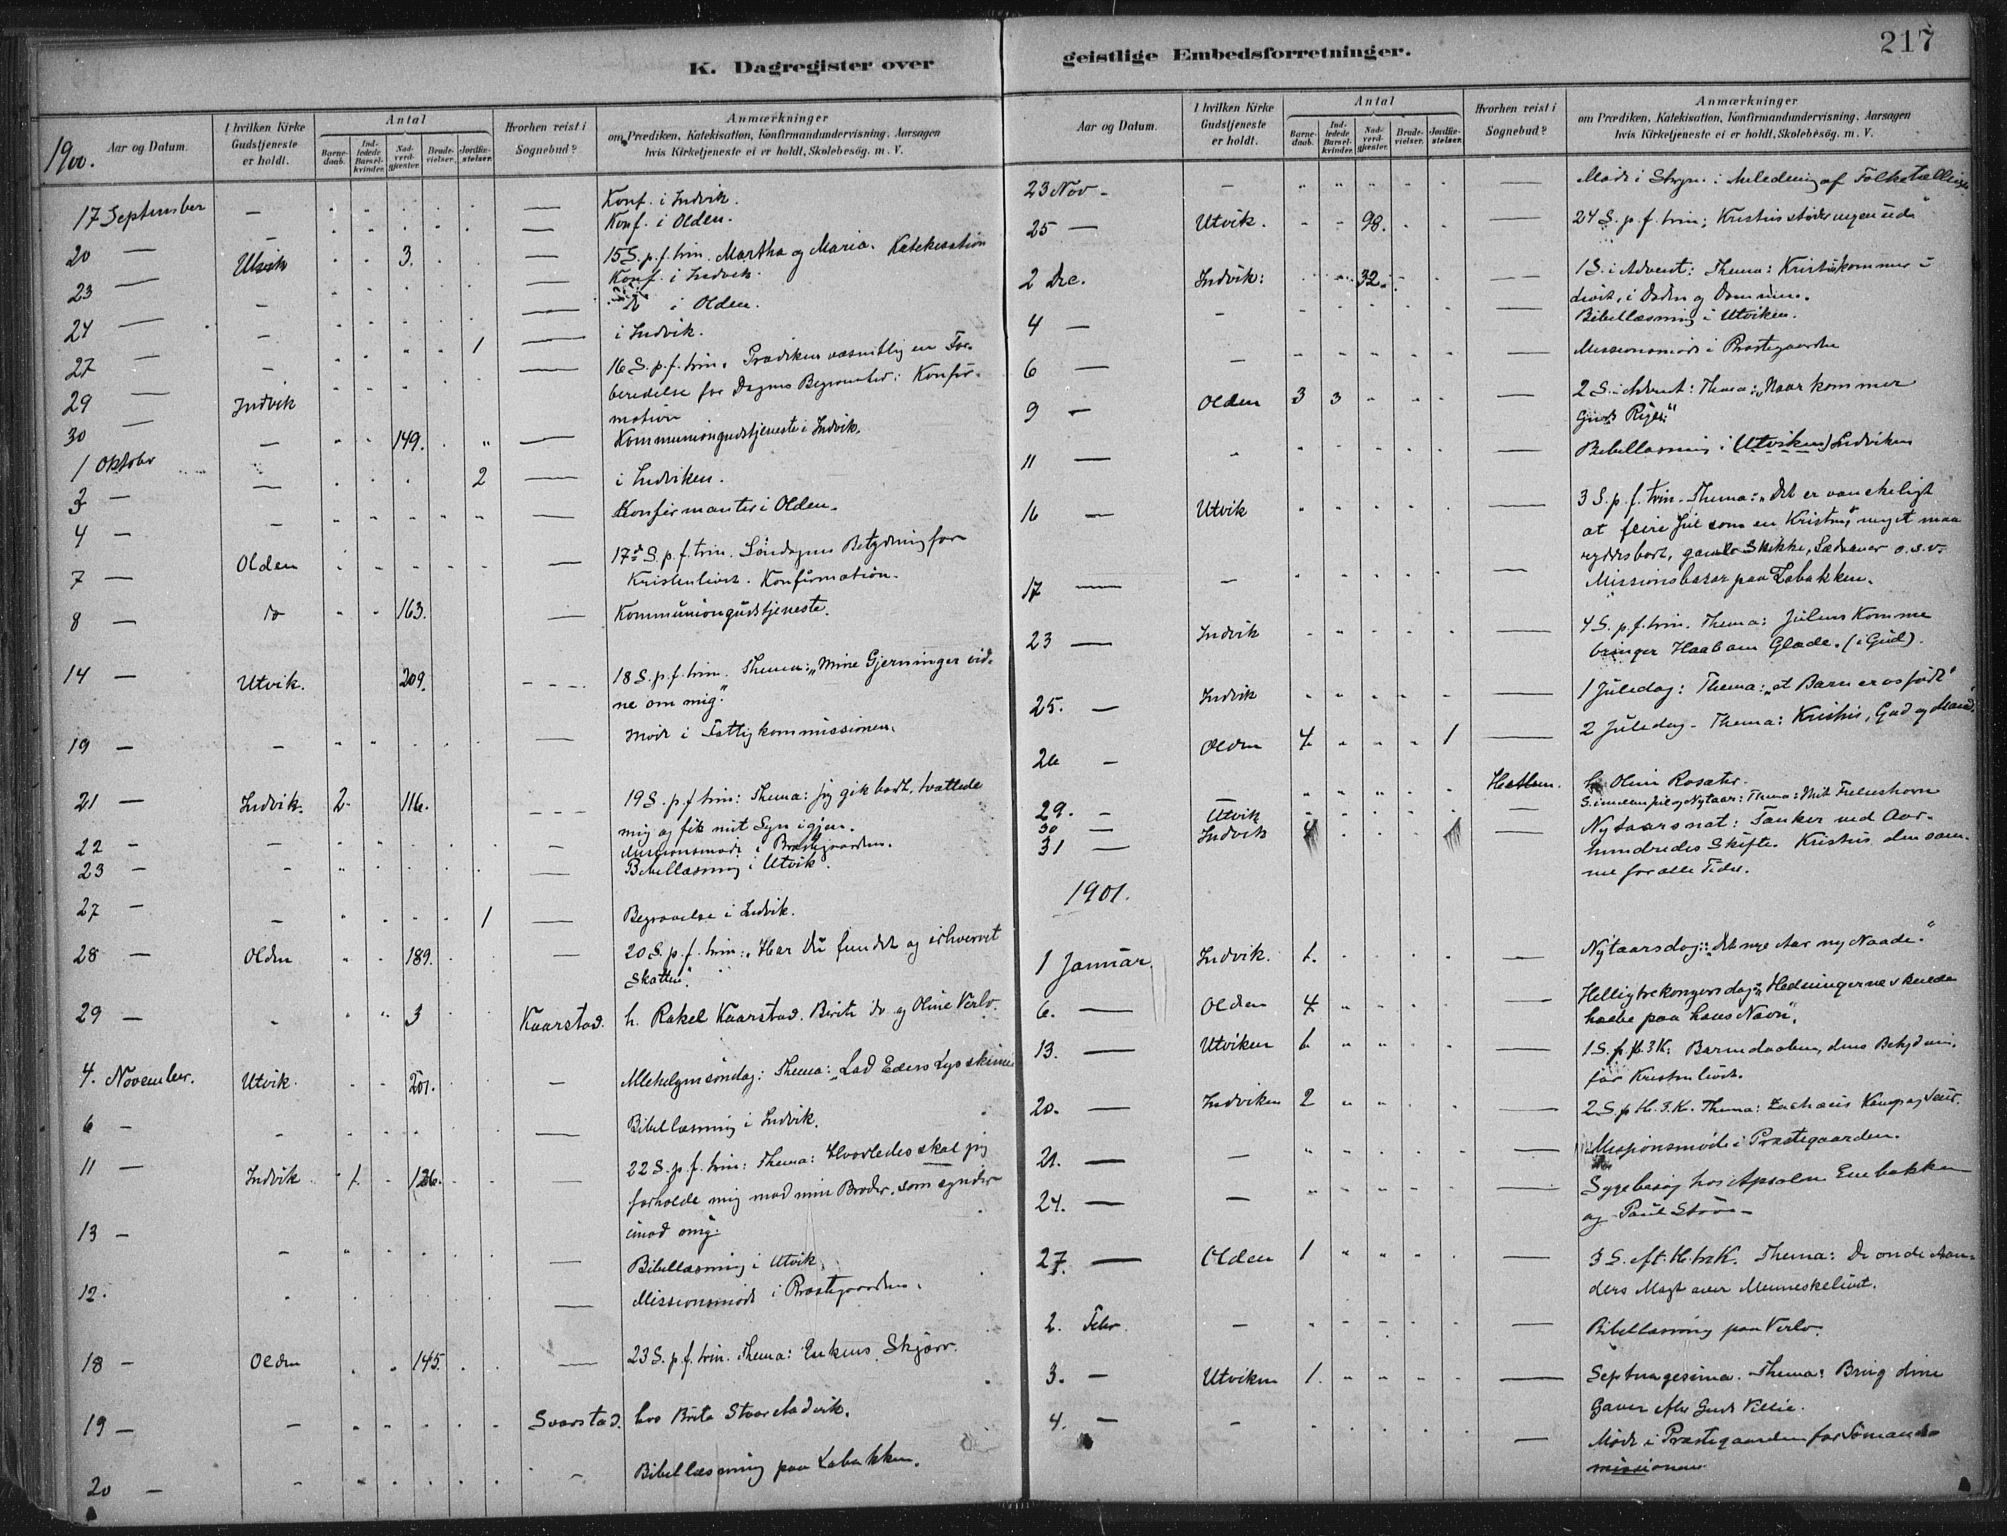 217
K. Dagregister over geistlige Embedsforretninger.
1900.
Aar og Datum.
I hvilken Kirke Gudstjeneste er holdt.
Antal
Barnedaab.
Indledede Barselkvinder.
Nadverdgjæster.
Brudevielser.
Jordfæstelser.
Hvorhen reist i Sognebud?
Anmærkninger
om Prædiken, Katekisation, Konfirmandundervisning, Aarsagen
hvis Kirketjeneste ei er holdt, Skolebesøg. m. V.
17 September — Konf. i Indvik.
20 — Konf. i Olden.
23 — Utvik 3. 15 S. p. f. trin. Martha og Maria. Katekisation
24 — Konf. i Indvik.
27 — do i Olden.
29 — 1 i Indvik.
30 — Indvik 16 S. p. f. trin. Prædiken væsentlig en For-
beredelse for Dagens Begivenhed: Konfir-
mation
1 Oktober — 149. Kommuniongudstjeneste i Indvik.
2 — 2 i Indviken.
4 — Konfirmanter i Olden.
7 — Olden 17de S. p. f. trin. Søndagens Betydning for
Kristenlivet. Konfirmation.
8 — do 163. Kommuniongudstjeneste.
14 — Utvik. 209. 18 S. p. f. trin. Thema: „Mine Gjerninger vid-
ne om mig."
19 — Møde i Fattigkommissionen.
21 — Indvik. 2 116. 19 S. p. f. trin: Thema: jeg gik bort, tvættede
mig og fik mit Syn igjen.
22 — Missionsmøde i Præstegaarden.
23 — Bibellæsning i Utvik.
27 — 1 Begravelse i Indvik.
28 — Olden 189. 20 S. p. f. trin: „Har Du fundet og erhvervet
Skatten".
29 — 3 Kaarstad. h. Rakel Kaarstad. Birite do og Oline Verlo.
4. November. Utvik. 201. Allehelgensøndag: Thema: „Lad Eders Lys skinne
6 — Bibellæsning i Indvik.
11 — Indvik 1 126. 22 S. p. f. trin: Thema: Hvorledes skal jeg
forholde mig mod min Broder, som synder
imod mig
13 — Bibellæsning i Utvik.
12. Missionsmøde i Præstegaarden.
18 — Olden 145. 23 S. p. f. trin. Thema: Enkens Skjærv.
19 — Svarstad. hos Brita
20 — Bibellæsning paa Løbakken.
Aar og Datum.
I hvilken Kirke Gudstjeneste er holdt.
Antal
Barnedaab.
Indledede Barselkvinder.
Nadverdgjæster.
Brudevielser.
Jordfæstelser.
Hvorhen reist i Sognebud?
Anmærkninger
om Prædiken, Katekisation, Konfirmandundervisning, Aarsagen
hvis Kirketjeneste ei er holdt, Skolebesøg. m. V.
23 Nov — Møde i Stryn i Anledning af Folketælling
25 — Utvik. 98. 24 S. p. f. trin;
2 Dec. Indvik: 32. 1 S. i Advent: Thema: Kristi kommer i
livet, i Døden og Dommen.
4 — Bibellæsning i Utviken.
6 — Missionsmøde i Præstegaarden
9 — Olden 3 3 2 S. i Advent: Thema: „Naar kommer
Guds Rige"
11 — Bibellæsning i (Utviken) Indviken
16 — Utvik 3 S. p. f. trin. Thema: „Det er vanskeligt
at feire Jul som en Kristen, meget maa
ryddes bort, gamle Skikke, Sædvaner o.s.v.
17 — Missionsbasar paa Løbakken.
23 — Indvik 4 S. p. f. trin. Thema: Julens Komme
bringer Haab om Glæde. (i Gud).
25. — Indvik 1 Juledag: Thema: „et Barn er os født"
26 — Olden 4 1 2 Juledag — Thema: Kristus, Gud og Mand.
29. — h. Oline Rosæter.
30 — Utvik S. imellem Jul og Nytaar: Thema: Mit Frelseshorn
31 — Indvik Nytaarsnat: Tanker ved Aar-
hundredes Skifte. Kristus den sam-
me for alle Tider.
1901.
1 Januar. Indvik. 1. Nytaarsdag: „Det nye Aar ny Naade."
6. — Olden 4 Helligtrekongersdag: „Hedningerne skulde
haabe paa hans Navn".
13. — Utviken 1 1 S. p. H. 3 K: Barnedaaben, dens Betydning
for Kristenlivet.
20. — Indviken 2 2 S. p. H. 3. K. Thema: Zachæus Kamp og Seir.
21. — Missionsmøde i Præstegaarden.
24. — Sygebesøg hos Apsalon Enebakken
og Paul
27. — Olden 1 3 S. eft. H. tr. K. Thema: De onde Aan-
ders Magt over Menneskelivet.
2. Febr. — Bibellæsning paa Verlo.
3. — Utviken 1. Septuagesima. Thema: Brug dine
Gaver efter Guds Villie.
4. — Møde i Præstegaarden for Sømands-
missionen